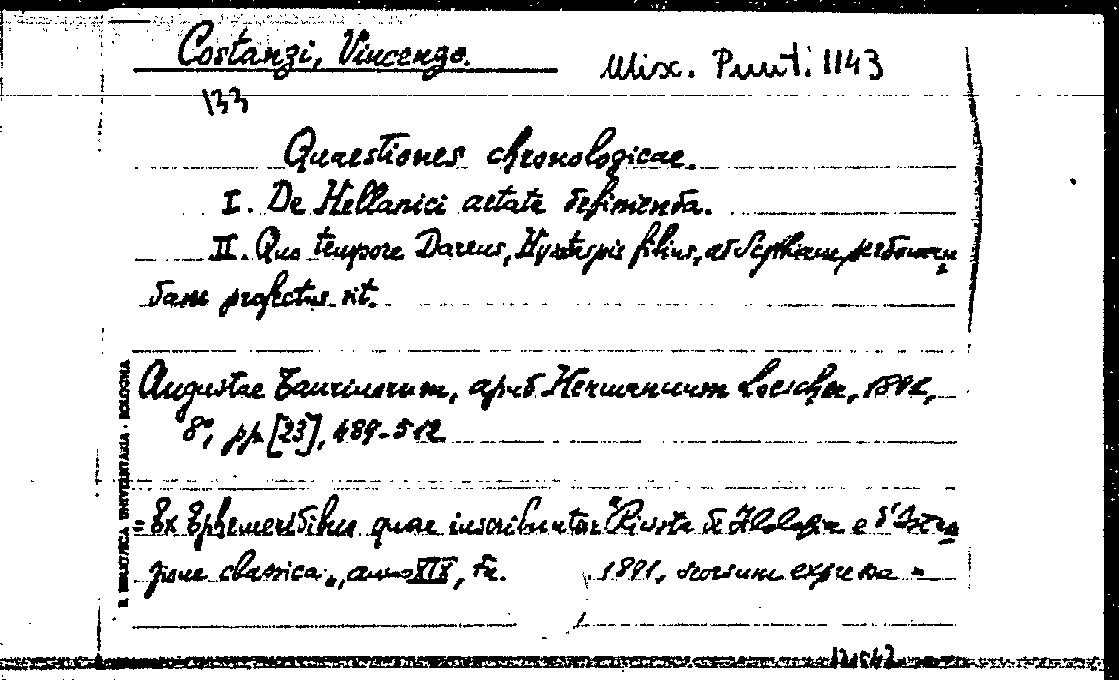 Costanzi, Vincenzo.
Misc. Punt. 1143
133
Quaestiones chronologicae.
I. De Hellanici aetate definienda.
II. Quo tempore Dareus, Hystaspis filius, ad Scythiam perdoman
dam profectus sit.
Augustae Taurinorum, apud Hermannum Loescher, 1891,
8°, pp. [23], 489-512
= Ex Ephemeridibus quae inscribuntur "Rivista di Filologia e d'Istru
zione classica", anno XIX, 1891, seorsum expressa =
R. BIBLIOTECA UNIVERSITARIA · BOLOGNA